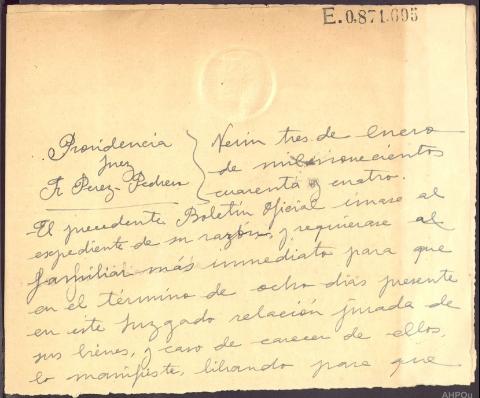 E.0.871.695
Providencia
Juez
Sr Perez-Pedrero
Verin tres de Enero
de mil novecientos
cuarenta y cuatro.
El precedente Boletín Oficial únase al
expediente de su razón, y requiérase al
familiar más inmediato para que
en el término de ocho dias presente
en este Juzgado relación jurada de
sus bienes, y caso de carecer de ellos,
lo manifieste, librando para que
AHPOu